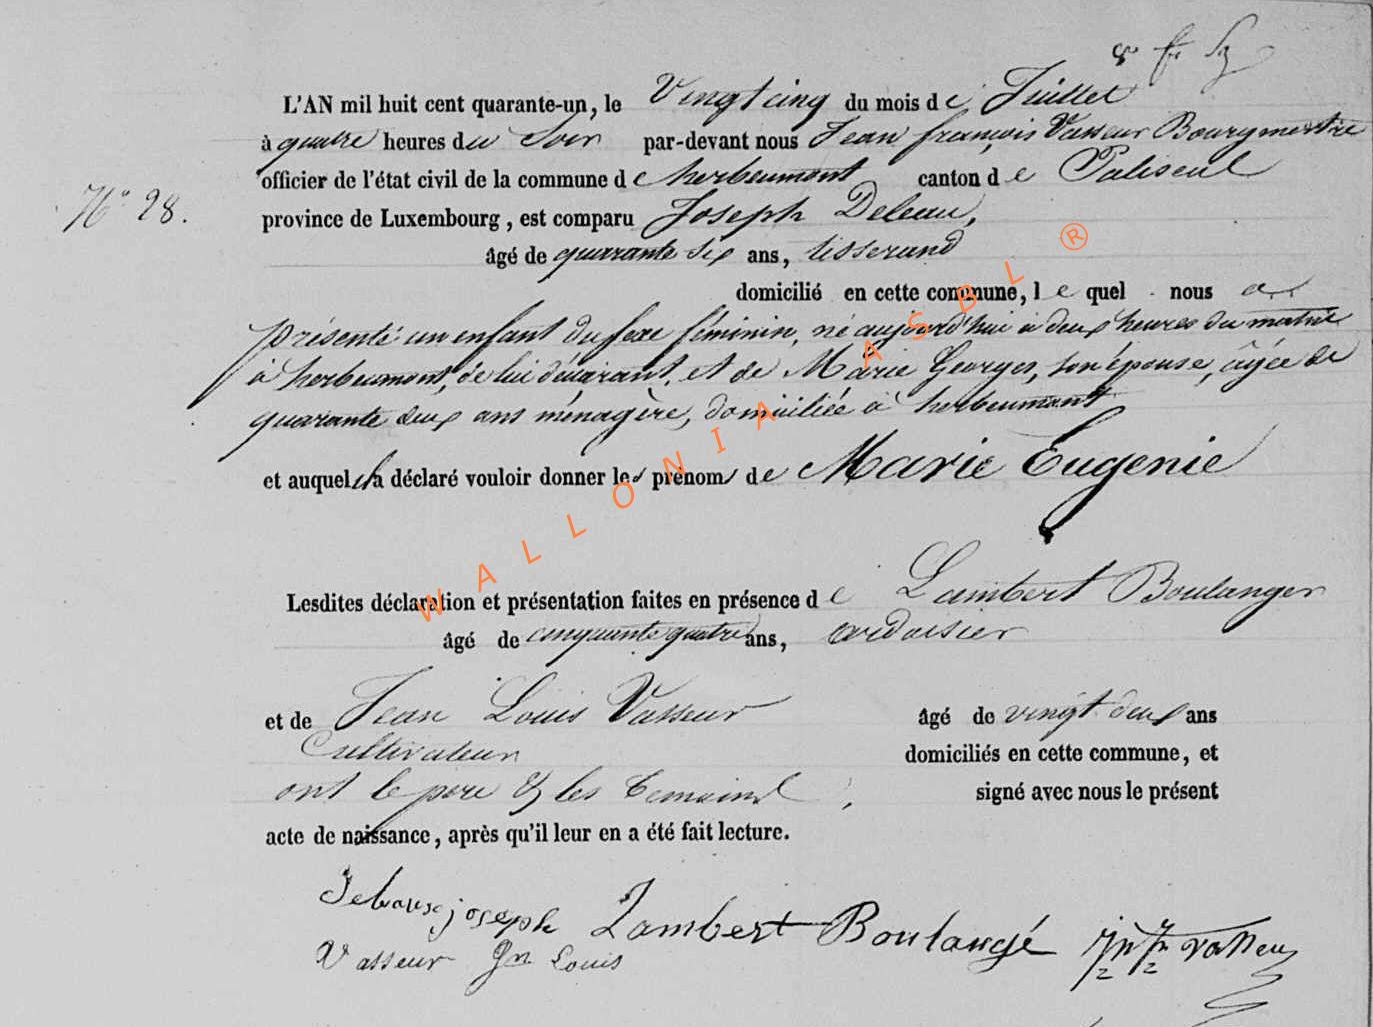 L'AN mil huit cent quarante-un, le Vingt cinq du mois de Juillet
à quatre heures du Soir par-devant nous Jean françois Vasseur Bourgmestre
officier de l'état civil de la commune de herbeumont canton de Paliseul
N° 28.
province de Luxembourg, est comparu Joseph Deleau,
âgé de quarante six ans, tisserand
domicilié en cette commune, lequel nous a
présenté un enfant du sexe féminin, né aujourd'hui à deux heures du matin
à herbeumont, de lui déclarant, et de Marie Georges, son épouse, âgée de
quarante deux ans ménagère, domiciliée à herbeumont
et auquel il a déclaré vouloir donner les prénoms de Marie Eugenie
Lesdites déclaration et présentation faites en présence de Lambert Boulanger
âgé de cinquante quatre ans, ardoisier
et de Jean Louis Vasseur âgé de vingt deux ans
Cultivateur domiciliés en cette commune, et
ont le père & les temoins signé avec nous le présent
acte de naissance, après qu'il leur en a été fait lecture.
joseph Lambert Boulangé
Vasseur Jn Louis
WALLONIA ASBL ®